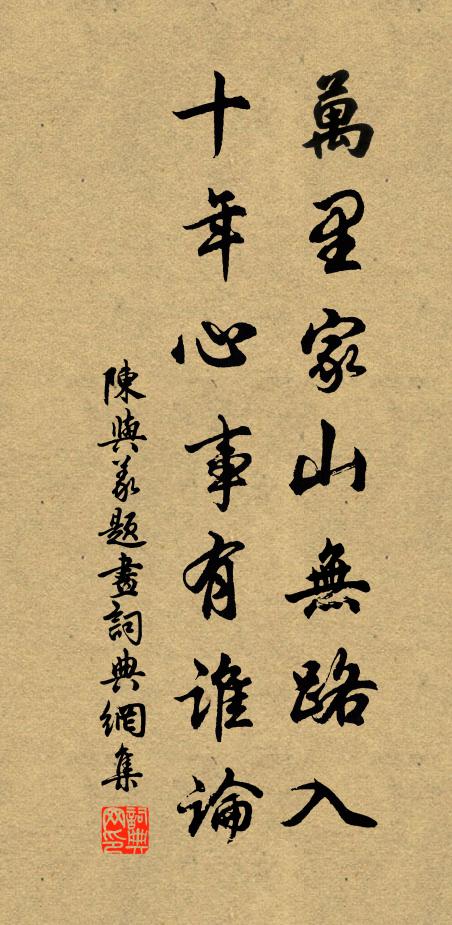 萬里家山無路入
十年心事有誰論
陳與義題畫詞典網集
詞典網印